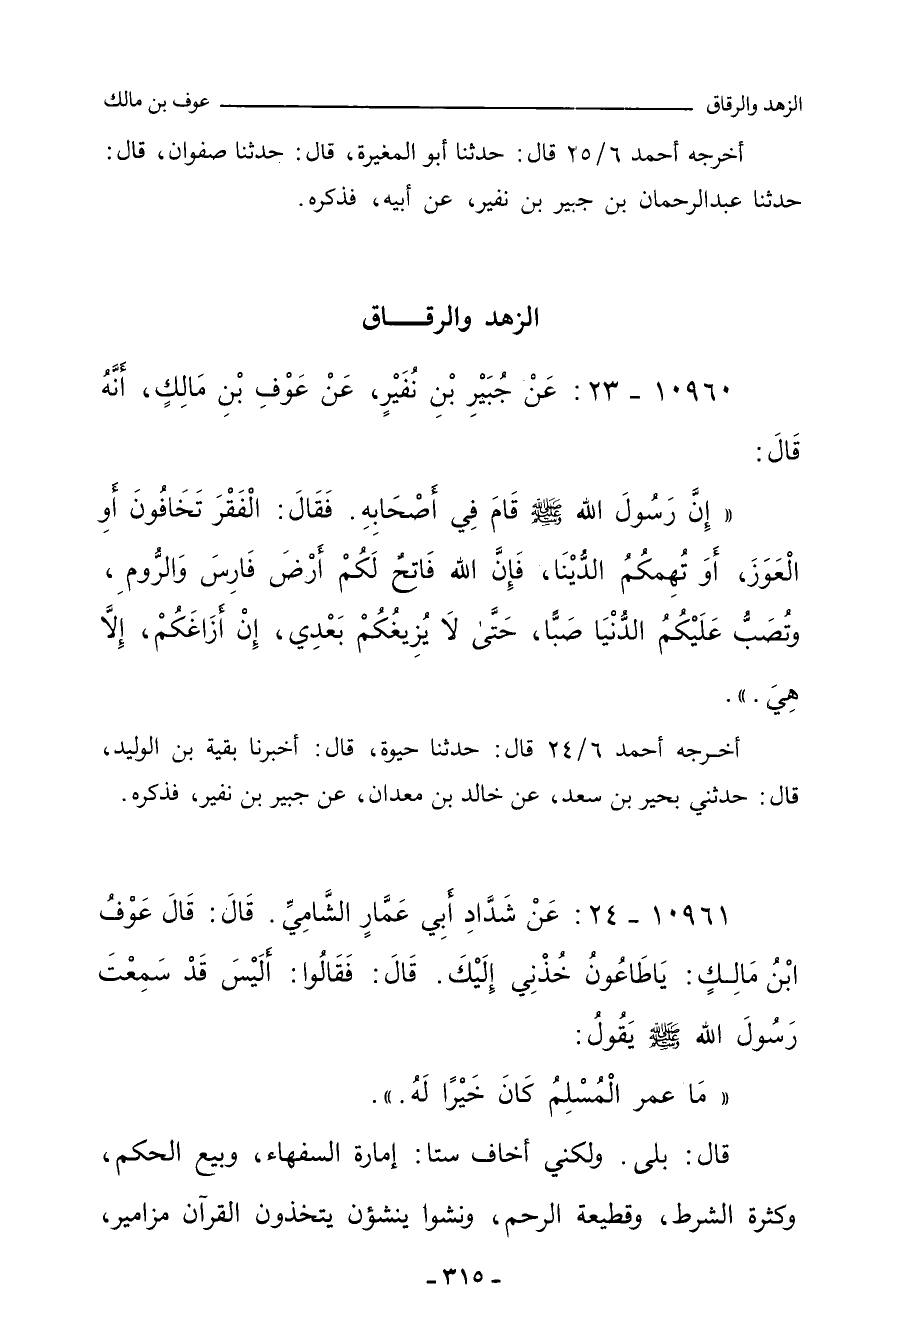 الزهد والرقاق ـــــــــــــــــــــــ عوف بن مالك
أخرجه أحمد ٢٥/٦ قال: حدثنا أبو المغيرة، قال: حدثنا صفوان، قال:
حدثنا عبدالرحمان بن جبير بن نفير، عن أبيه، فذكره.
الزهد والرقـــــاق
١٠٩٦٠ - ٢٣: عَنْ جُبَيْرِ بْنِ نُفَيْرٍ، عَنْ عَوْفِ بْنِ مَالِكٍ، أَنَّهُ
قَالَ:
« إِنَّ رَسُولَ الله ﷺ قَامَ فِي أَصْحَابِهِ. فَقَالَ: الْفَقْرَ تَخَافُونَ أَوِ
الْعَوَزَ، أَوَ تُهِمكُمُ الدُّنْيَا، فَإِنَّ الله فَاتِحٌ لَكُمْ أَرْضَ فَارِسَ وَالرُّومِ،
وتُصَبُّ عَلَيْكُمُ الدُّنْيَا صَبًّا، حَتَّىٰ لَا يُزِيغُكُمْ بَعْدِي، إِنْ أَزَاغَكُمْ، إِلَّا
هِيَ.».
أخـرجه أحمد ٢٤/٦ قال: حدثنا حيوة، قال: أخبرنا بقية بن الوليد،
قال: حدثني بحير بن سعد، عن خالد بن معدان، عن جبير بن نفير، فذكره.
١٠٩٦١ - ٢٤: عَنْ شَدَّادٍ أَبِي عَمَّارٍ الشَّامِيِّ. قَالَ: قَالَ عَوْفُ
ابْنُ مَالِـكٍ: يَاطَاعُونُ خُذْنِي إِلَيْكَ. قَالَ: فَقَالُوا: أَلَيْسَ قَدْ سَمِعْتَ
رَسُولَ الله ﷺ يَقُولُ:
« مَا عمر الْمُسْلِمُ كَانَ خَيْرًا لَهُ.».
قال: بلى. ولكني أخاف ستا: إمارة السفهاء، وبيع الحكم،
وكثرة الشرط، وقطيعة الرحم، ونشوا ينشؤن يتخذون القرآن مزامير،
- ٣١٥ -